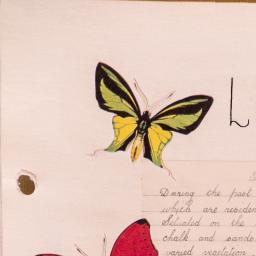 L
During the past
which are residen
Situated on the
chalk and sando
varied vegetation